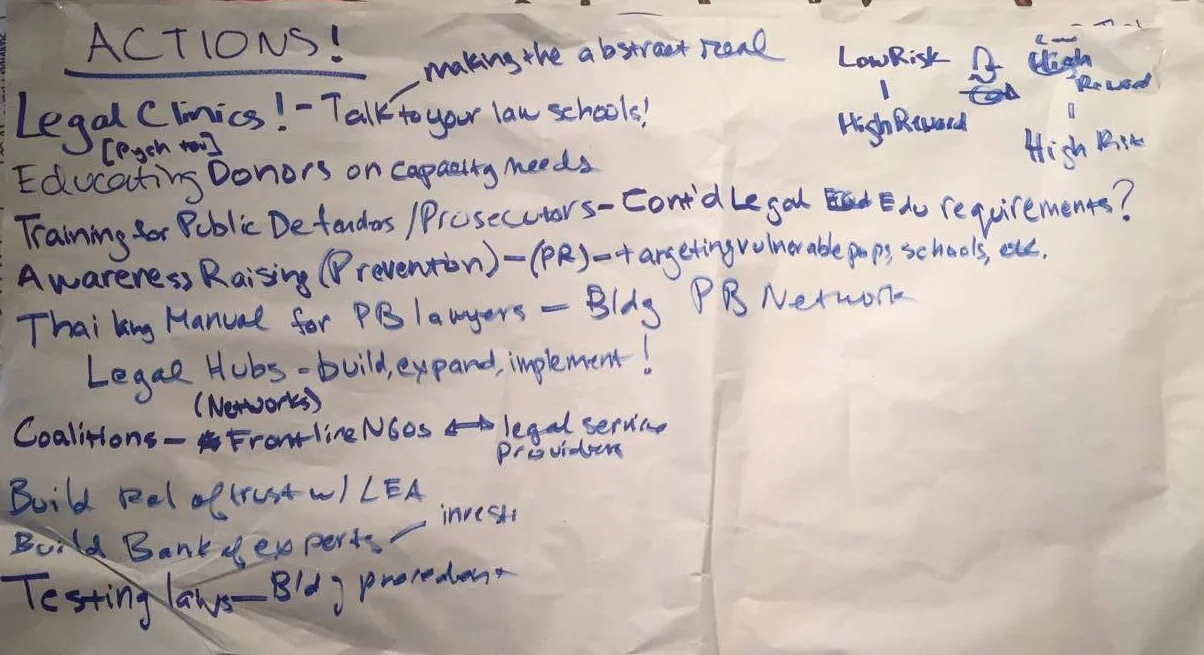 ACTIONS!
making the abstract real
Legal Clinics! - Talk to your law schools!
Educating Donors on capacity needs
Training for Public Defenders/Prosecutors - Cont'd Legal Edu requirements?
Awareness Raising (Prevention) - (PR) - targeting vulnerable pops, schools, etc.
Manual for PB lawyers - Bldg PB Network
Legal Hubs - build, expand, implement!
(Networks)
Coalitions - Frontline NGOs ↔ legal service
Providers
Build Rel of trust w/ LEA
Build Bank of experts - investi
Testing laws - Bldg precedent
Low Risk
High Reward
High
Reward
High Risk